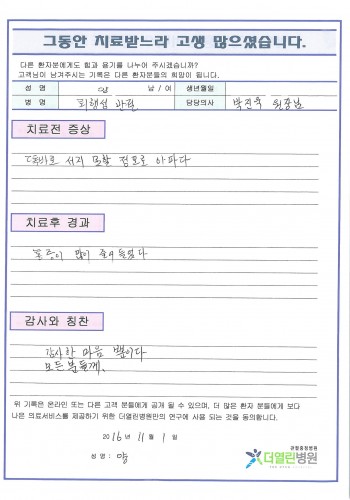 그동안 치료받느라 고생 많으셨습니다.
다른 환자분에게도 힘과 용기를 나누어 주시겠습니까?
고객님이 남겨주시는 기록은 다른 환자분들의 희망이 됩니다.
성 명 양 남 / 여 생년월일
병 명 퇴행성 관절 담당의사 박진욱 원장님
치료전 증상
똑바로 서지 못할 정도로 아파다
치료후 경과
통증이 많이 줄어들었다
감사와 칭찬
감사한 마음 뿐이다
모든분들께.
위 기록은 온라인 또는 다른 고객 분들에게 공개 될 수 있으며, 더 많은 환자 분들에게 보다
나은 의료서비스를 제공하기 위한 더열린병원만의 연구에 사용 되는 것을 동의합니다.
2016년 11월 1일
성 명 : 양
관절중점병원
더열린병원